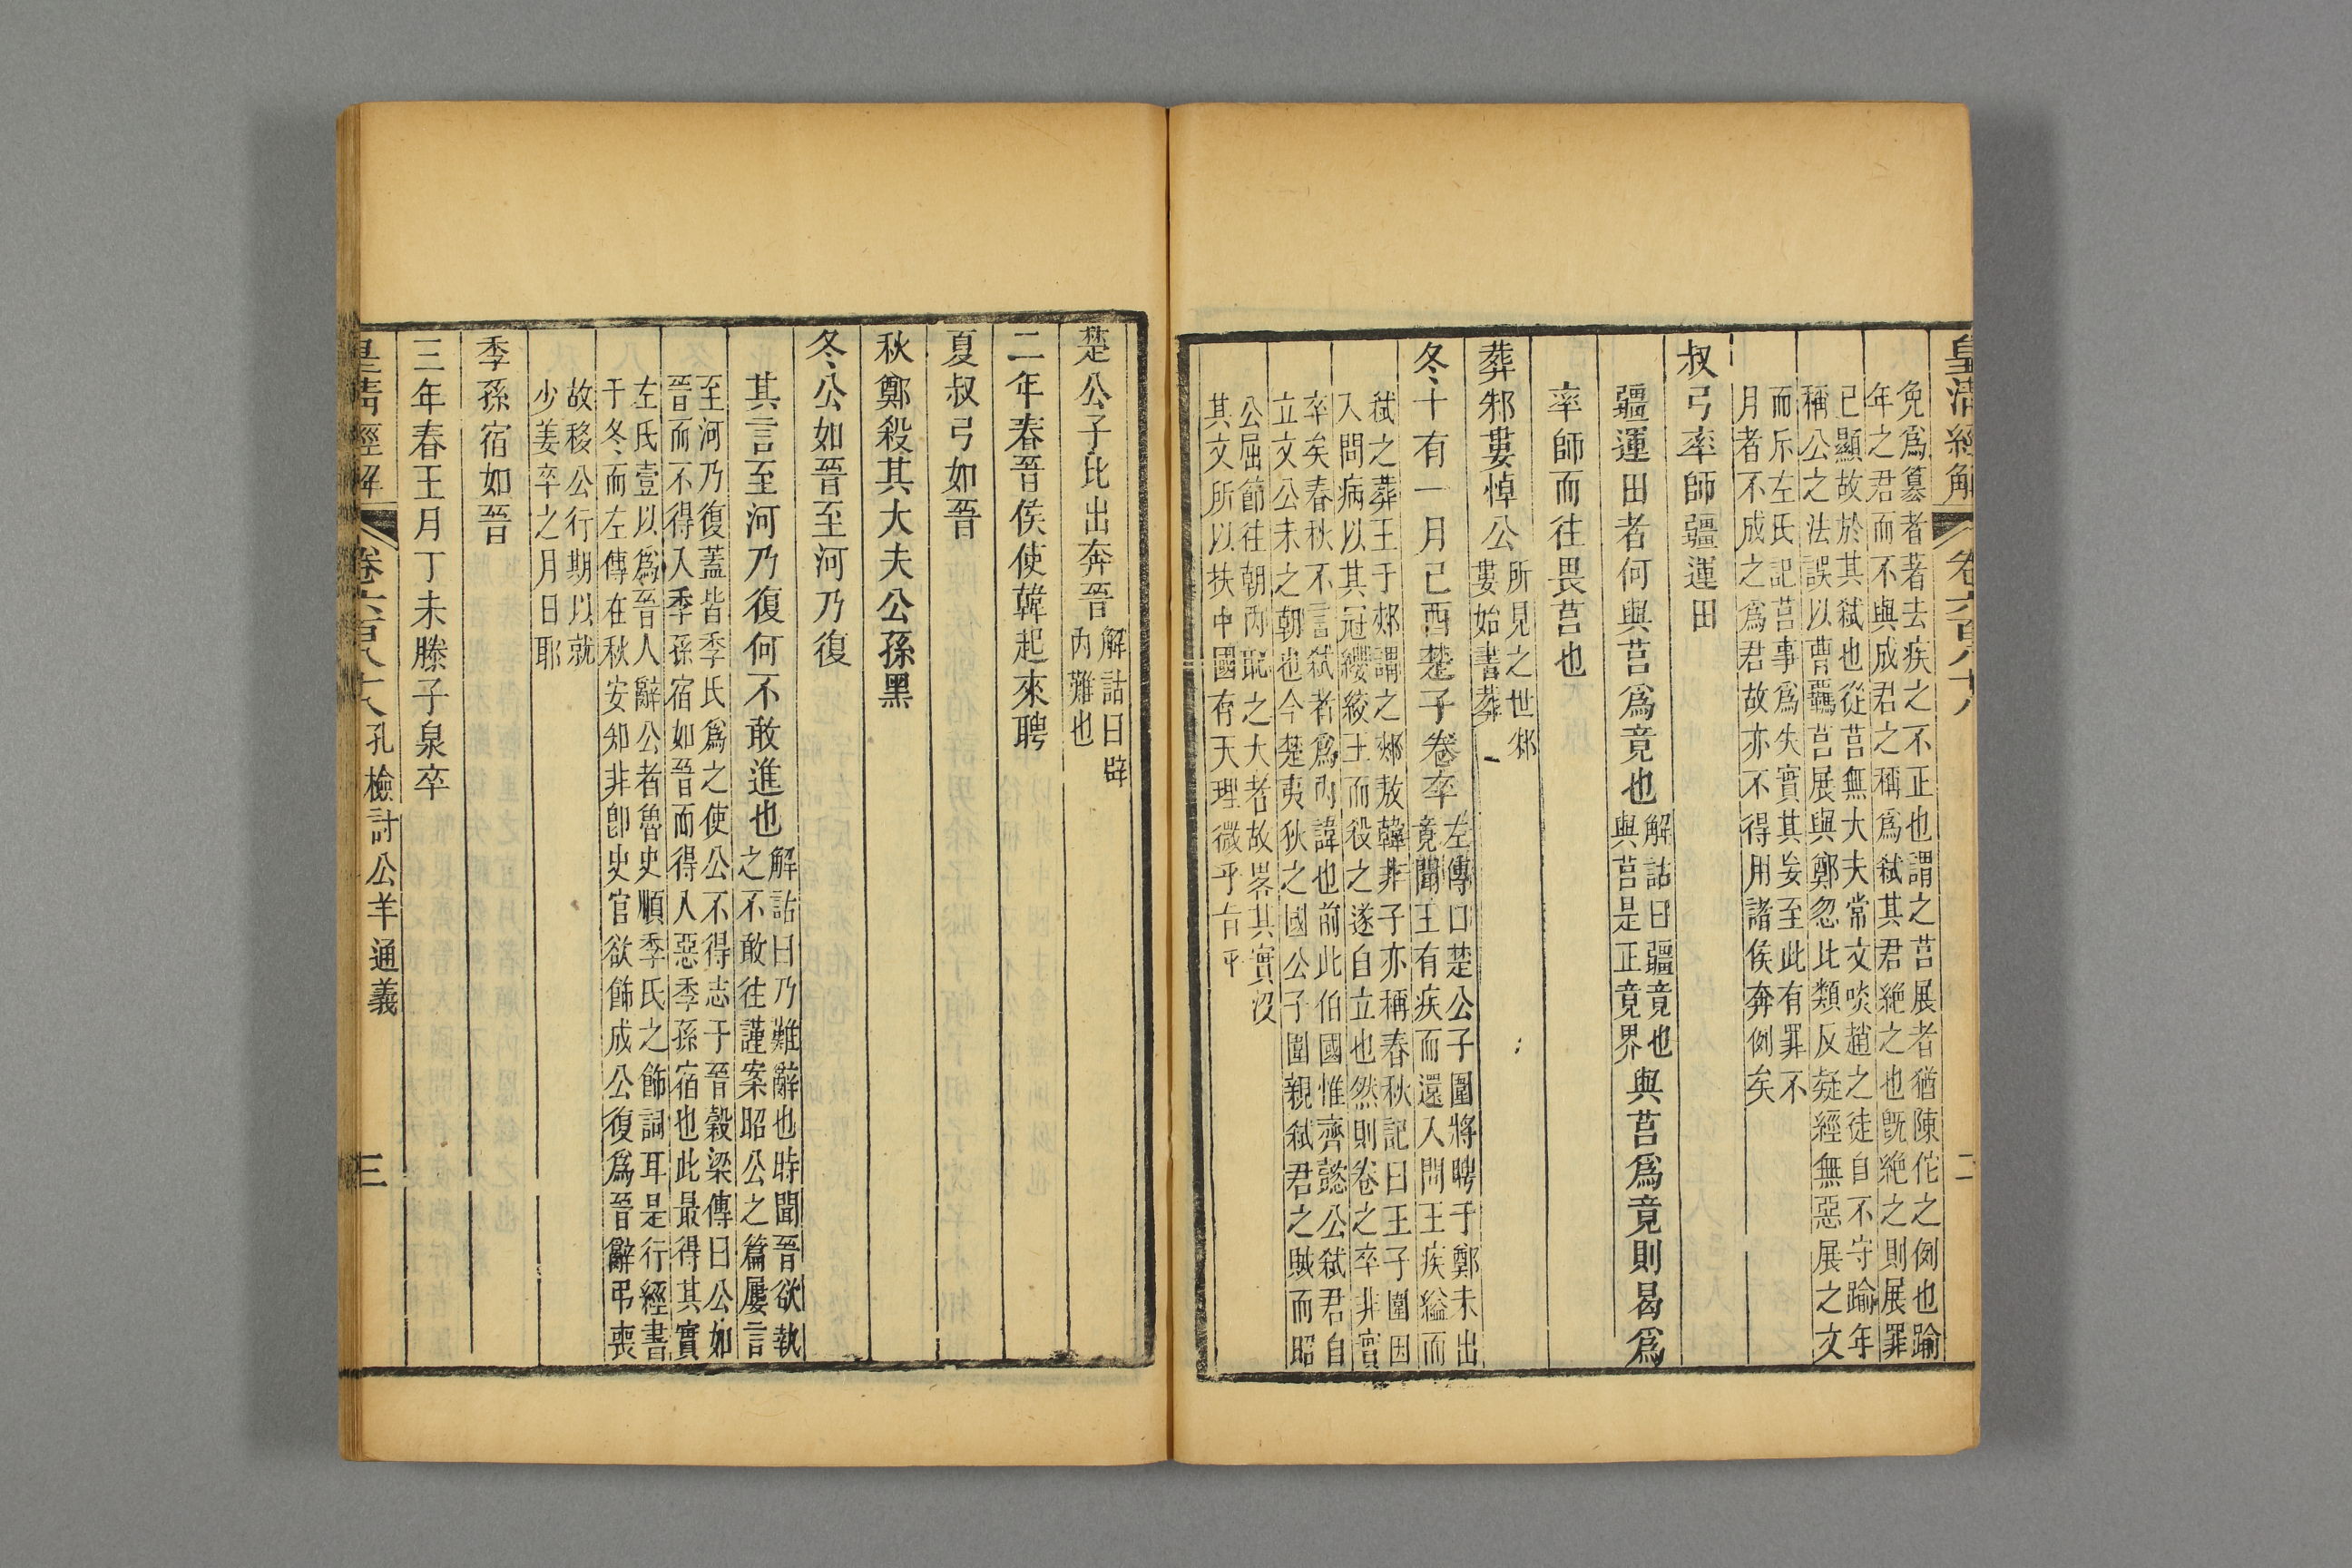 皇清經解 卷六百八十八 二
免爲簒者著去疾之不正也謂之莒展者猶陳佗之例也踰
年之君而不與成君之稱爲弑其君絶之也旣絶之則展罪
已顯故於其弑也從莒無大夫常文啖趙之徒自不守踰年
稱公之法誤以曹羈莒展與鄭忽比類反疑經無惡展之文
而斥左氏記莒事爲失實其妄至此有罪不
月者不成之爲君故亦不得用諸侯奔例矣
叔弓率師疆運田
疆運田者何與莒爲竟也解詁曰疆竟也
與莒是正竟界與莒爲竟則曷爲
率師而往畏莒也
葬邾婁悼公所見之世邾
婁始書葬
冬十有一月己酉楚子卷卒左傳曰楚公子圍將聘于鄭未出
竟聞王有疾而還入問王疾縊而
弑之葬王于郟謂之郟敖韓非子亦稱春秋記曰王子圍因
入問病以其冠纓絞王而殺之遂自立也然則卷之卒非實
卒矣春秋不言弑者爲內諱也前此伯國惟齊懿公弑君自
立文公未之朝也今楚夷狄之國公子圍親弑君之賊而昭
公屈節往朝內恥之大者故畧其實沒
其文所以扶中國存天理微乎旨乎
楚公子比出奔晉解詁曰辟
內難也
二年春晉侯使韓起來聘
夏叔弓如晉
秋鄭殺其大夫公孫黑
冬公如晉至河乃復
其言至河乃復何不敢進也解詁曰乃難辭也時聞晉欲執
之不敢往謹案昭公之篇屢言
至河乃復蓋皆季氏爲之使公不得志于晉穀梁傳曰公如
晉而不得入季孫宿如晉而得入惡季孫宿也此最得其實
左氏壹以爲晉人辭公者魯史順季氏之飾詞耳是行經書
于冬而左傳在秋安知非卽史官欲飾成公復爲晉辭弔喪
故移公行期以就
少姜卒之月日耶
季孫宿如晉
三年春王月丁未滕子泉卒
皇清經解 卷六百八十八 孔檢討公羊通義 三